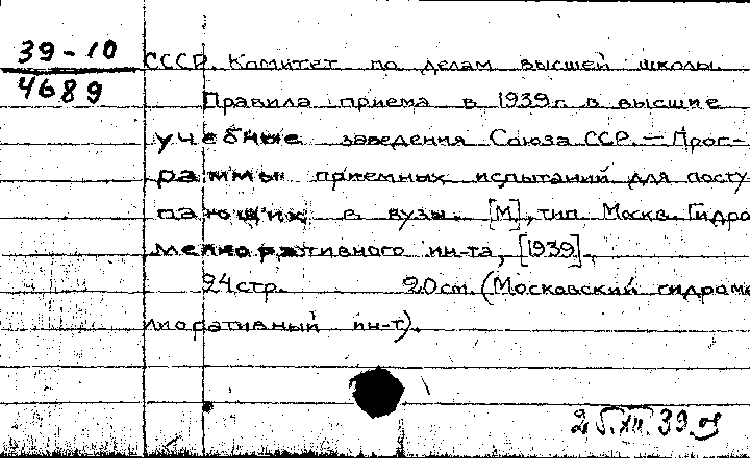 39-10
4689
СССР. Комитет по делам высшей школы.
Правила приема в 1939г. в высшие
учебные заведения Союза ССР. — Прог-
раммы приемных испытаний для посту
пающих в вузы. [М], тип. Моск. Гидро
мелиоративного ин-та, [1939].
24стр. 20см. (Московский гидроме
лиоративный ин-т).
25.XII.39